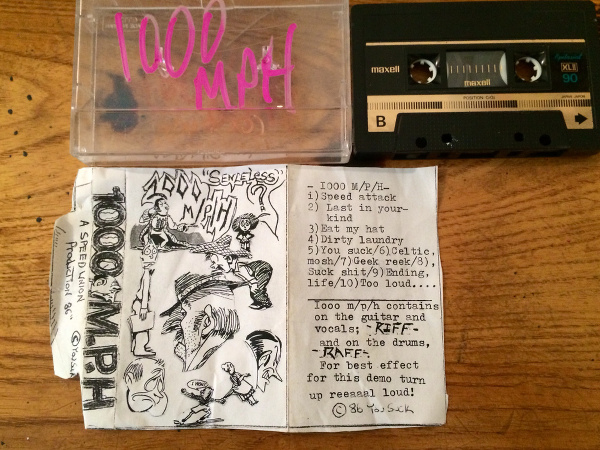 1000
MPH
maxell
maxell
XLII
90
POSITION
B
"SENSELESS"
1000
MPH
?
1000. M.P.H
A SPEED UNION
PRODUCTION 86"
- I000 M/P/H-
i)Speed attack
2) Last in your-
kind
3)Eat my hat
4)Dirty laundry
5)You suck/6)Celtic,
mosh/7)Geek reek/8),
Suck shit/9)Ending,
life/I0)Too loud....
Iooo m/p/h contains
on the guitar and
vocals; -RIFF-
and on the drums,
-RAFF-.
For best effect
for this demo turn
up reeaaal loud!
© 86 You Suck